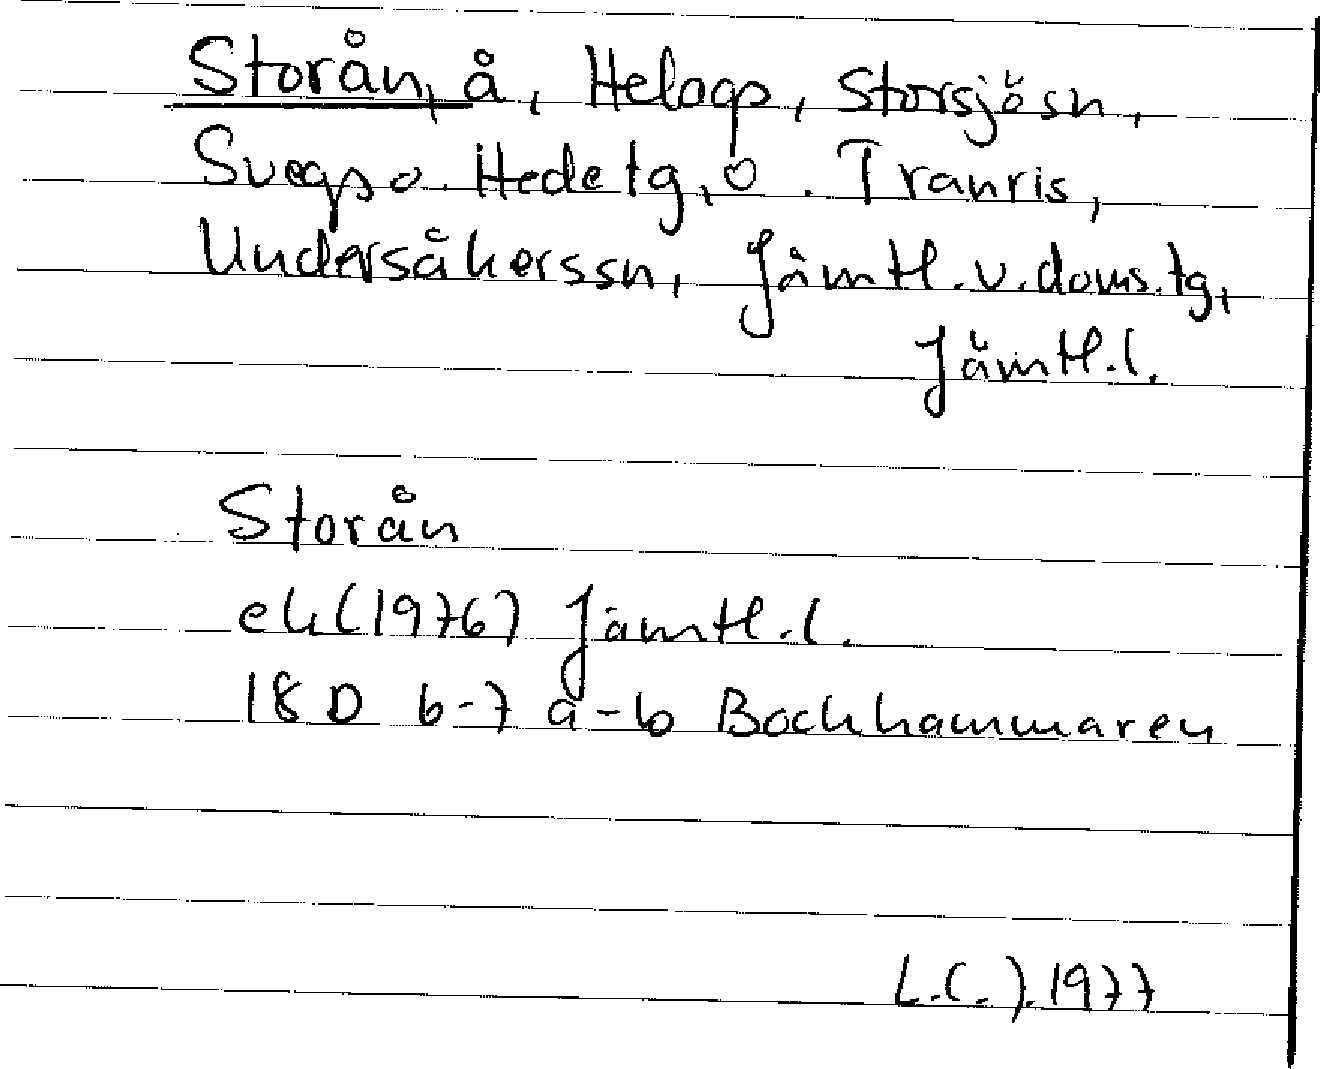 Storån, å, Helags, Storsjösn,
Svegs o. Hede tg, o. Tranris,
Undersåkerssn, Jämtl.v.doms.tg,
Jämtl.l.
Storån
ek (1976) Jämtl.l.
18 D 6-7 a-b Bockhammaren
1977